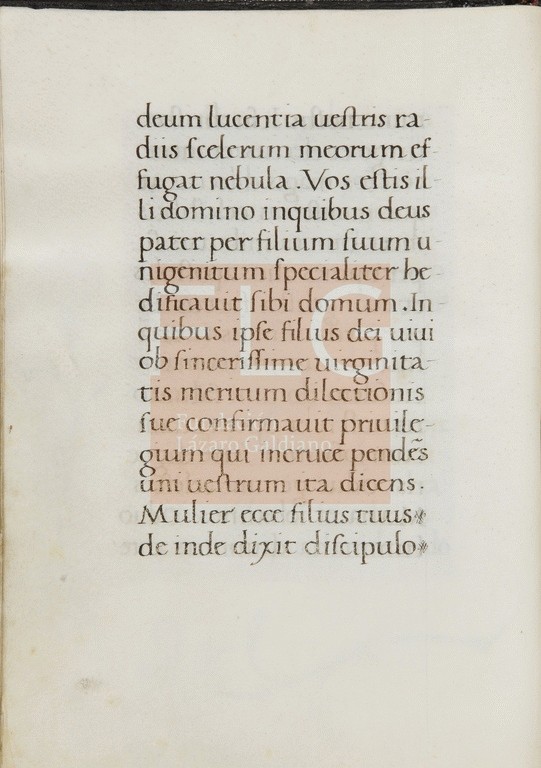 deum lucentia uestris ra-
diis scelerum meorum ef-
fugat nebula . Vos estis il-
li domino inquibus deus
pater per filium suum u-
nigenitum specialiter he-
dificauit sibi domum . In-
quibus ipse filius dei uiui
ob sincerissime uirginita-
tis meritum dilectionis
sue confirmauit priuile-
gium qui incruce pendēs
uni uestrum ita dicens .
Mulier ecce filius tuus
de inde dixit discipulo
FLG
Fundación
Lázaro Galdiano